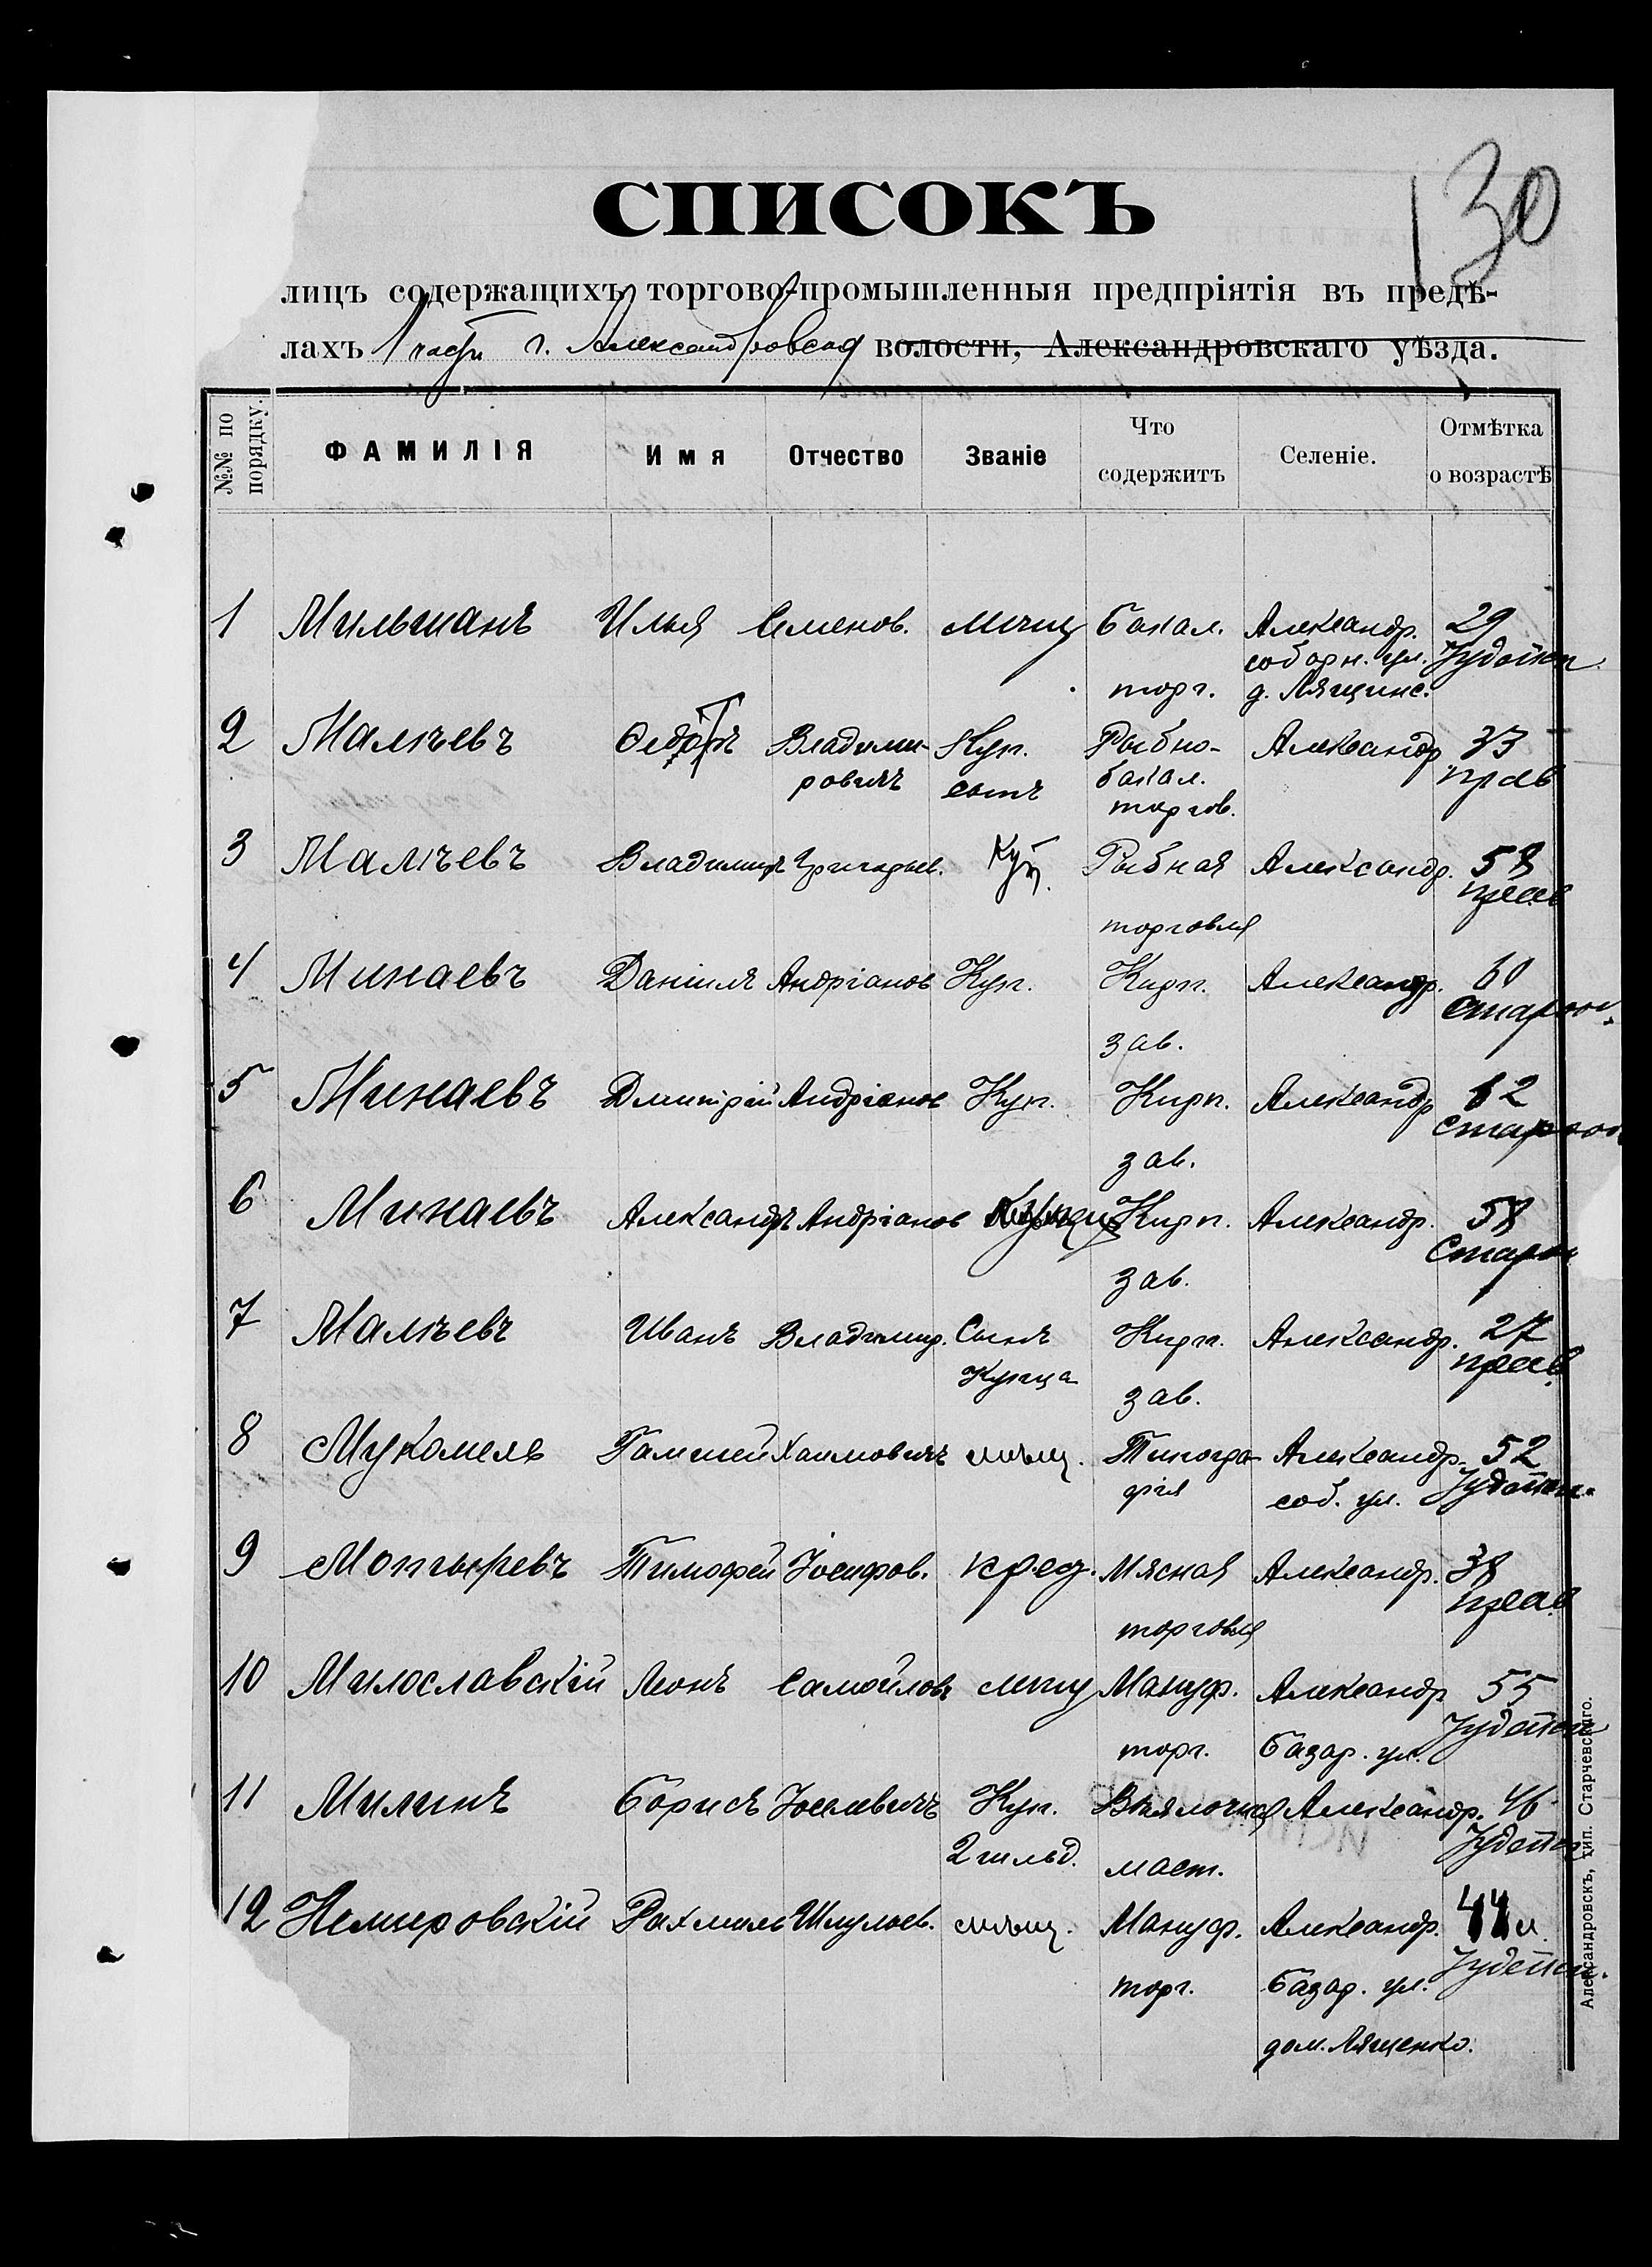 130
СПИСОКЪ
лицъ содержащихъ торгово-промышленныя предпріятія въ предѣ-
лахъ 1 части г. Александровска волости, Александровскаго уѣзда.
№№ по порядку. ФАМИЛІЯ Имя Отчество Званіе Что содержитъ Селеніе. Отмѣтка о возрастѣ
1 Мильманъ Илья Семенов. мѣщ Бакал. Александр. 29
соборн. ул. Іудейск
торг. д. Лящинс.
2 Малѣевъ Ѳедоръ Владими- Куп. Рыбно- Александр 33
ровичъ сынъ бакал. прав
торгов.
3 Малѣевъ Владимиръ Григорьев. Куп. Рыбная Александр. 58
прав
торговля
4 Минаевъ Даніилъ Андріанов Куп. Кирп. Александр. 60
зав. Старооб.
5 Минаевъ Дмитрій Андріанов Куп. Кирп. Александр 62
зав. Старооб
6 Минаевъ Александръ Андріанов Купец Кирп. Александр. 58
зав. Староо
7 Малѣевъ Иванъ Владимир. Сынъ Кирп. Александр. 27
купца зав. прав.
8 Мукомель Гамшей Хаимовичъ мѣщ. Типогра- Александр. 52
фія соб. ул. Іудейск.
9 Монгыревъ Тимофей Іосифов. крес. Мясная Александр. 38
торговля прав.
10 Милославскій Леонъ Самойловъ мѣщ Мануф. Александр 55
торг. Базар. ул. Іудейск
11 Милинъ Борисъ Іоселевичъ Куп. Александр. 46
2 гильд. маст. Іудейск
12 Немировскій Рахмиль Шмулев. мѣщ. Мануф. Александр. 44
торг. Базар. ул. Іудейск.
дом. Лященко.
Александровскъ, тип. Старчевскаго.